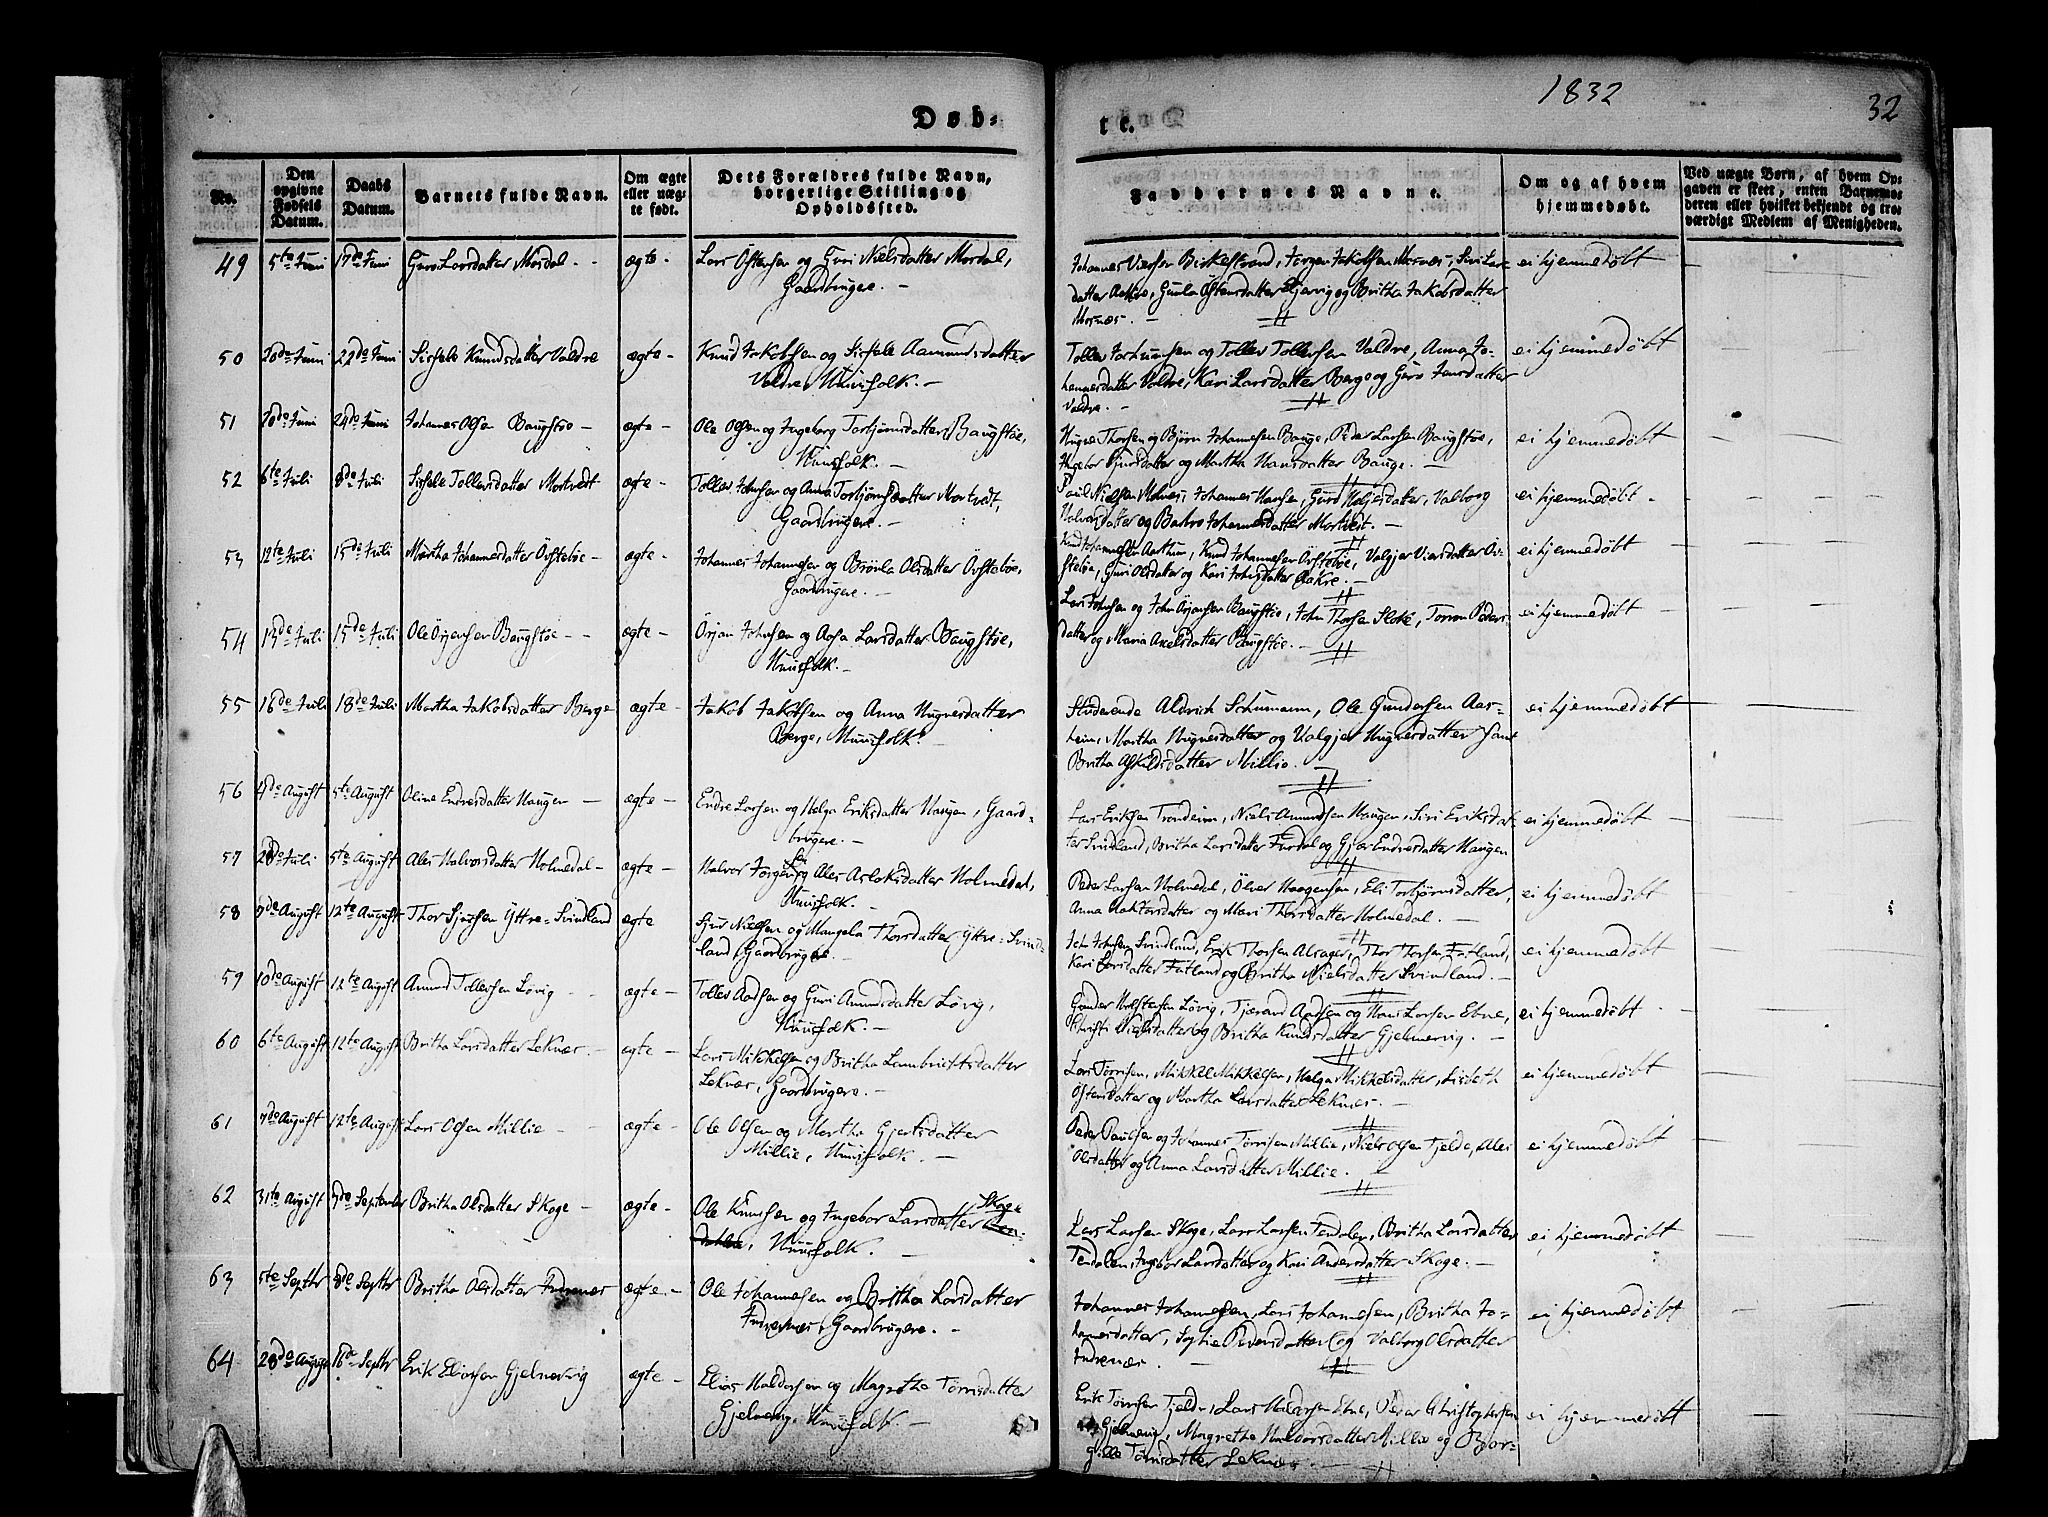 1832
32
Døb-
te.
No.
Den opgivne Fødsels Datum.
Daabs Datum.
Barnets fulde Navn.
Om ægte eller uægte født.
Dets Forældres fulde Navn, borgerlige Stilling og Opholdssted.
Faddernes Navne.
Om og af hvem hjemmedøbt.
Ved uægte Børn, af hvem Opgaven er skeet, enten Barnemoderen eller hvilket bekjendt og troværdigt Medlem af Menigheden.
49 5te Juni 17de Juni Guro Larsdatter Mosdal - ægte - Lars Østensen og Guri Nielsdatter Mosdal,
Gaardbrugere. -
Johannes Birkestrand, Jørgen Jakobsen Mosnæs, Siri Lars-
datter Aakre, Gunla Østensdatter og Britha Jakobsdatter
Mosnæs. -
ei hjemmedøbt
50 20de Juni 22de Juni Sissele Knudsdatter Valdre ægte - Knud Jakobsen og Sissele Aamundsdatter
Valdre, Huusfolk. -
Tollev Johnsen og Tollev Tollevsen Valdre, Anna Jo-
hannesdatter Valdre, Kari Larsdatter Berge og Guro Jansdatter
Valdre. -
ei hjemmedøbt
51 20de Juni 24de Juni Johannes Olsen Baugstøe - ægte - Ole Olsen og Ingeborg Torbjørnsdatter Baugstøe,
Huusfolk. -
Thorsen og Bjørn Johannesen Bauge, Peder Larsen Baugstøe,
Ingebor Guttormsdatter og Martha Hansdatter Bauge. -
ei hjemmedøbt
52 6te Juli 8de Juli Sissele Tollevsdatter Mortvedt ægte - Tollev Johnsen og Anna Torbjørnsdatter Mortvedt,
Gaardbrugere. -
Poul Nielsen Molnes, Johannes Hansen, Guro Heljesdatter, Valborg
Halvorsdatter og Barbro Johannesdatter Mortvedt. -
ei hjemmedøbt
53 12te Juli 15de Juli Martha Johannesdatter Østebøe - ægte - Johannes Johannesen og Brønla Olsdatter Østebøe,
Gaardbrugere. -
Knud Johannesen Aarthun, Knud Johannesen Østebøe, Valgjer Viersdatter Øs-
tebøe, Guri Olsdatter og Kari Johnsdatter Aakre. -
ei hjemmedøbt
54 13de Juli 15de Juli Ole Ørjansen Baugstøe - ægte - Ørjan Johnsen og Aasa Larsdatter Baugstøe,
Huusfolk. -
Lars Johnsen og John Ørjansen Baugstøe, John Thorsen Sloke, Torron Peders-
datter og Maria Axelsdatter Baugstøe. -
ei hjemmedøbt
55 16de Juli 18de Juli Martha Jakobsdatter Berge ægte - Jakob Jakobsen og Anna Hugnesdatter
Berge, Huusfolk. -
Studerende Aldrich Schumann, Ole Gundersen Aas-
heim, Martha Hugnesdatter og Valgjer Hugnesdatter samt
Britha Askildsdatter Millie. -
ei hjemmedøbt
56 4de August 5te August Oline Endresdatter Haugen - ægte - Endre Larsen og Helga Eriksdatter Haugen, Gaard-
brugere. -
Lars Eriksen Trondeim, Niels Amundsen Haugen, Siri Eriksdat-
ter Svindland, Britha Larsdatter Furdal og Gjær Endresdatter Haugen
ei hjemmedøbt
57 28de Juli 5te August Ales Halvorsdatter Holmedal - ægte - Halvor Jørgensen og Ales Aslaksdatter Holmedal,
Huusfolk. -
Peder Larsen Holmedal, Ølver Haagensen, Eli Torbjørnsdatter,
Anna Halvorsdatter og Mari Thorsdatter Holmedal. -
ei hjemmedøbt
58 7de August 12te August Thor Sjursen Yttre-Svindland ægte Sjur Nielsen og Mangela Thorsdatter Yttre-Svind-
land, Gaardbrugere. -
John Johnsen Svindland, Erik Thorsen Alsager, Thor Thorsen Fatland,
Kari Larsdatter Fatland og Britha Nielsdatter Svindland. -
ei hjemmedøbt
59 10de August 12te August Amund Tollevsen Løvig - ægte - Tollev Aadsen og Guri Amundsdatter Løvig,
Huusfolk. -
Gunder Løvig, Tjærand Aadsen og Hans Larsen Ebne,
Christi Nielsdatter og Britha Knudsdatter Gjelmervig. -
ei hjemmedøbt
60 6te August 12te August Britha Larsdatter Leknæs - ægte - Lars Mikkelsen og Britha Lambrichtsdatter
Leknæs, Gaardbrugere. -
Lars Tørrisen, Mikkel Mikkelsen, Helga Mikkelsdatter, Lisbeth
Østensdatter og Martha Larsdatter Leknæs. -
ei hjemmedøbt
61 7de August 12te August Lars Olsen Millie - ægte - Ole Olsen og Martha Gjertsdatter
Millie, Huusfolk. -
Peder Paulsen og Johannes Tørrisen Millie, Niels Olsen Fjelde, Ales
Olsdatter og Anna Larsdatter Millie. -
ei hjemmedøbt
62 31te August 7de September Britha Olsdatter Skoge - ægte - Ole Knudsen og Ingebor Larsdatter Skoge
, Huusfolk. -
Lars Larsen Skoge, Lars Larsen Tendalen, Britha Larsdatter
Tendalen, Ingebor Larsdatter og Kari Andersdatter Skoge. -
ei hjemmedøbt
63 5te Septbr 8de Septbr Britha Olsdatter Indrenæs ægte. - Ole Johannesen og Britha Larsdatter
Indrenæs, Gaardbrugere. -
Johannes Johannesen, Lars Johannesen, Britha Jo-
hanesdatter, Sophie Pedersdatter og Valborg Olsdatter
Indrenæs. -
ei hjemmedøbt
64 28de August 16de Septbr Erik Eliassen Gjelmervig ægte - Elias Haldorsen og Magrethe Tørrisdatter
Gjelmervig, Huusfolk. -
Erik Tørrisen Fjelde, Lars Haldorsen Ebne, Peder Christophersen
Gjelmervig, Magrethe Haldorsdatter Millie og Bor-
gilde Tørrisdatter Leknæs -
ei hjemmedøbt